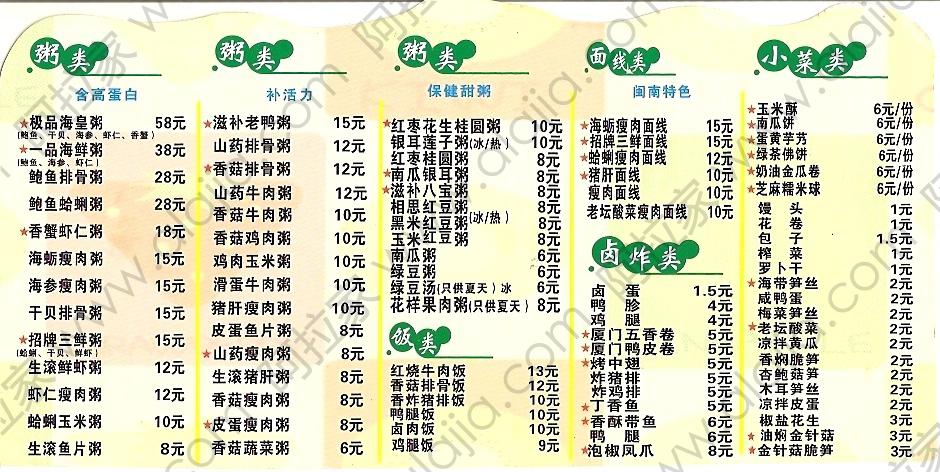 粥类
含高蛋白
★极品海皇粥 58元
(鲍鱼、干贝、海参、虾仁、香蟹)
★一品海鲜粥 38元
(鲍鱼、海参、虾仁)
鲍鱼排骨粥 28元
鲍鱼蛤蜊粥 28元
★香蟹虾仁粥 18元
海蛎瘦肉粥 15元
海参瘦肉粥 15元
干贝排骨粥 15元
★招牌三鲜粥 15元
(蛤蜊、干贝、鲜虾)
生滚鲜虾粥 12元
虾仁瘦肉粥 12元
蛤蜊玉米粥 10元
生滚鱼片粥 8元
粥类
补活力
★滋补老鸭粥 15元
山药排骨粥 12元
★香菇排骨粥 12元
山药牛肉粥 12元
香菇牛肉粥 10元
香菇鸡肉粥 10元
鸡肉玉米粥 10元
滑蛋牛肉粥 10元
猪肝瘦肉粥 10元
皮蛋鱼片粥 8元
★山药瘦肉粥 8元
生滚猪肝粥 8元
香菇瘦肉粥 8元
★皮蛋瘦肉粥 8元
香菇蔬菜粥 6元
粥类
保健甜粥
★红枣花生桂圆粥 10元
银耳莲子粥(冰/热) 10元
红枣桂圆粥 8元
★南瓜银耳粥 8元
★滋补八宝粥 8元
相思红豆粥 8元
(冰/热)
黑米红豆粥 8元
玉米红豆粥 8元
南瓜粥 6元
绿豆粥 6元
绿豆汤(只供夏天)冰 6元
花样果肉粥(只供夏天) 8元
饭类
红烧牛肉饭 13元
香菇排骨饭 12元
香炸猪排饭 10元
鸭腿饭 10元
卤肉饭 10元
鸡腿饭 9元
面线类
闽南特色
★海蛎瘦肉面线 15元
★招牌三鲜面线 15元
★蛤蜊瘦肉面线 12元
★猪肝面线 10元
瘦肉面线 10元
老坛酸菜瘦肉面线 10元
卤炸类
卤蛋 1.5元
鸭胗 4元
鸡腿 4元
★厦门五香卷 5元
★厦门鸭皮卷 5元
★烤中翅 5元
炸猪排 5元
炸鸡排 5元
★丁香鱼 5元
★香酥带鱼 6元
鸭腿 6元
★泡椒凤爪 8元
小菜类
★玉米酥 6元/份
★南瓜饼 6元/份
★蛋黄芋艿 6元/份
★绿茶佛饼 6元/份
★奶油金瓜卷 6元/份
★芝麻糯米球 6元/份
馒头 1元
花卷 1元
包子 1.5元
榨菜 1元
萝卜干 1元
★海带笋丝 2元
咸鸭蛋 2元
梅菜笋丝 2元
★老坛酸菜 2元
凉拌黄瓜 2元
香焖脆笋 2元
杏鲍菇笋 2元
木耳笋丝 2元
凉拌皮蛋 2元
椒盐花生 3元
★油焖金针菇 3元
★金针菇脆笋 3元
阿拉家 www.dajia.com